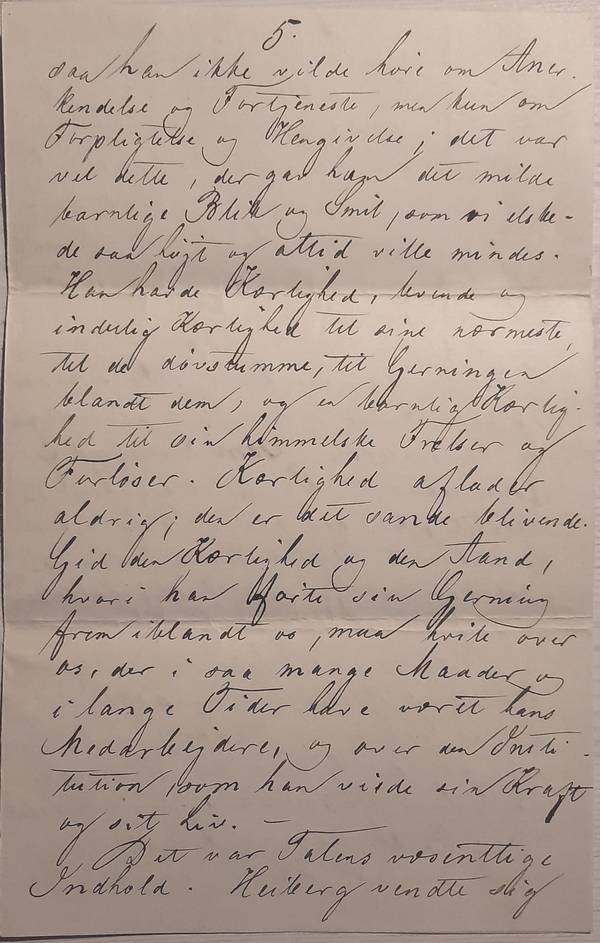 5.
saa han ikke vilde höre om Aner-
kendelse og Fortjeneste, men kun om
Forpligtelse og Hengivelse; det var
vel dette, der gav ham det milde
barnlige Blik og Smil, som vi elske-
de saa höjt og altid ville mindes.
Han havde Kærlighed, levende og
inderlig Kærlighed til sine nærmeste,
til de dövstumme, til Gerningen
blandt dem, og en barnlig Kærlig-
hed til sin himmelske Frelser og
Forlöser. Kærlighed aflader
aldrig; den er det sande blivende.
Gid den Kærlighed og den Aand,
hvori han förte sin Gerning
frem iblandt os, maa hvile over
os, der i saa mange Maader og
i lange Tider have været hans
Medarbejdere, og over den Insti-
tution, som han viede sin Kraft
og sit Liv. —
Det var Talens væsentlige
Indhold. Heiberg vendte sig